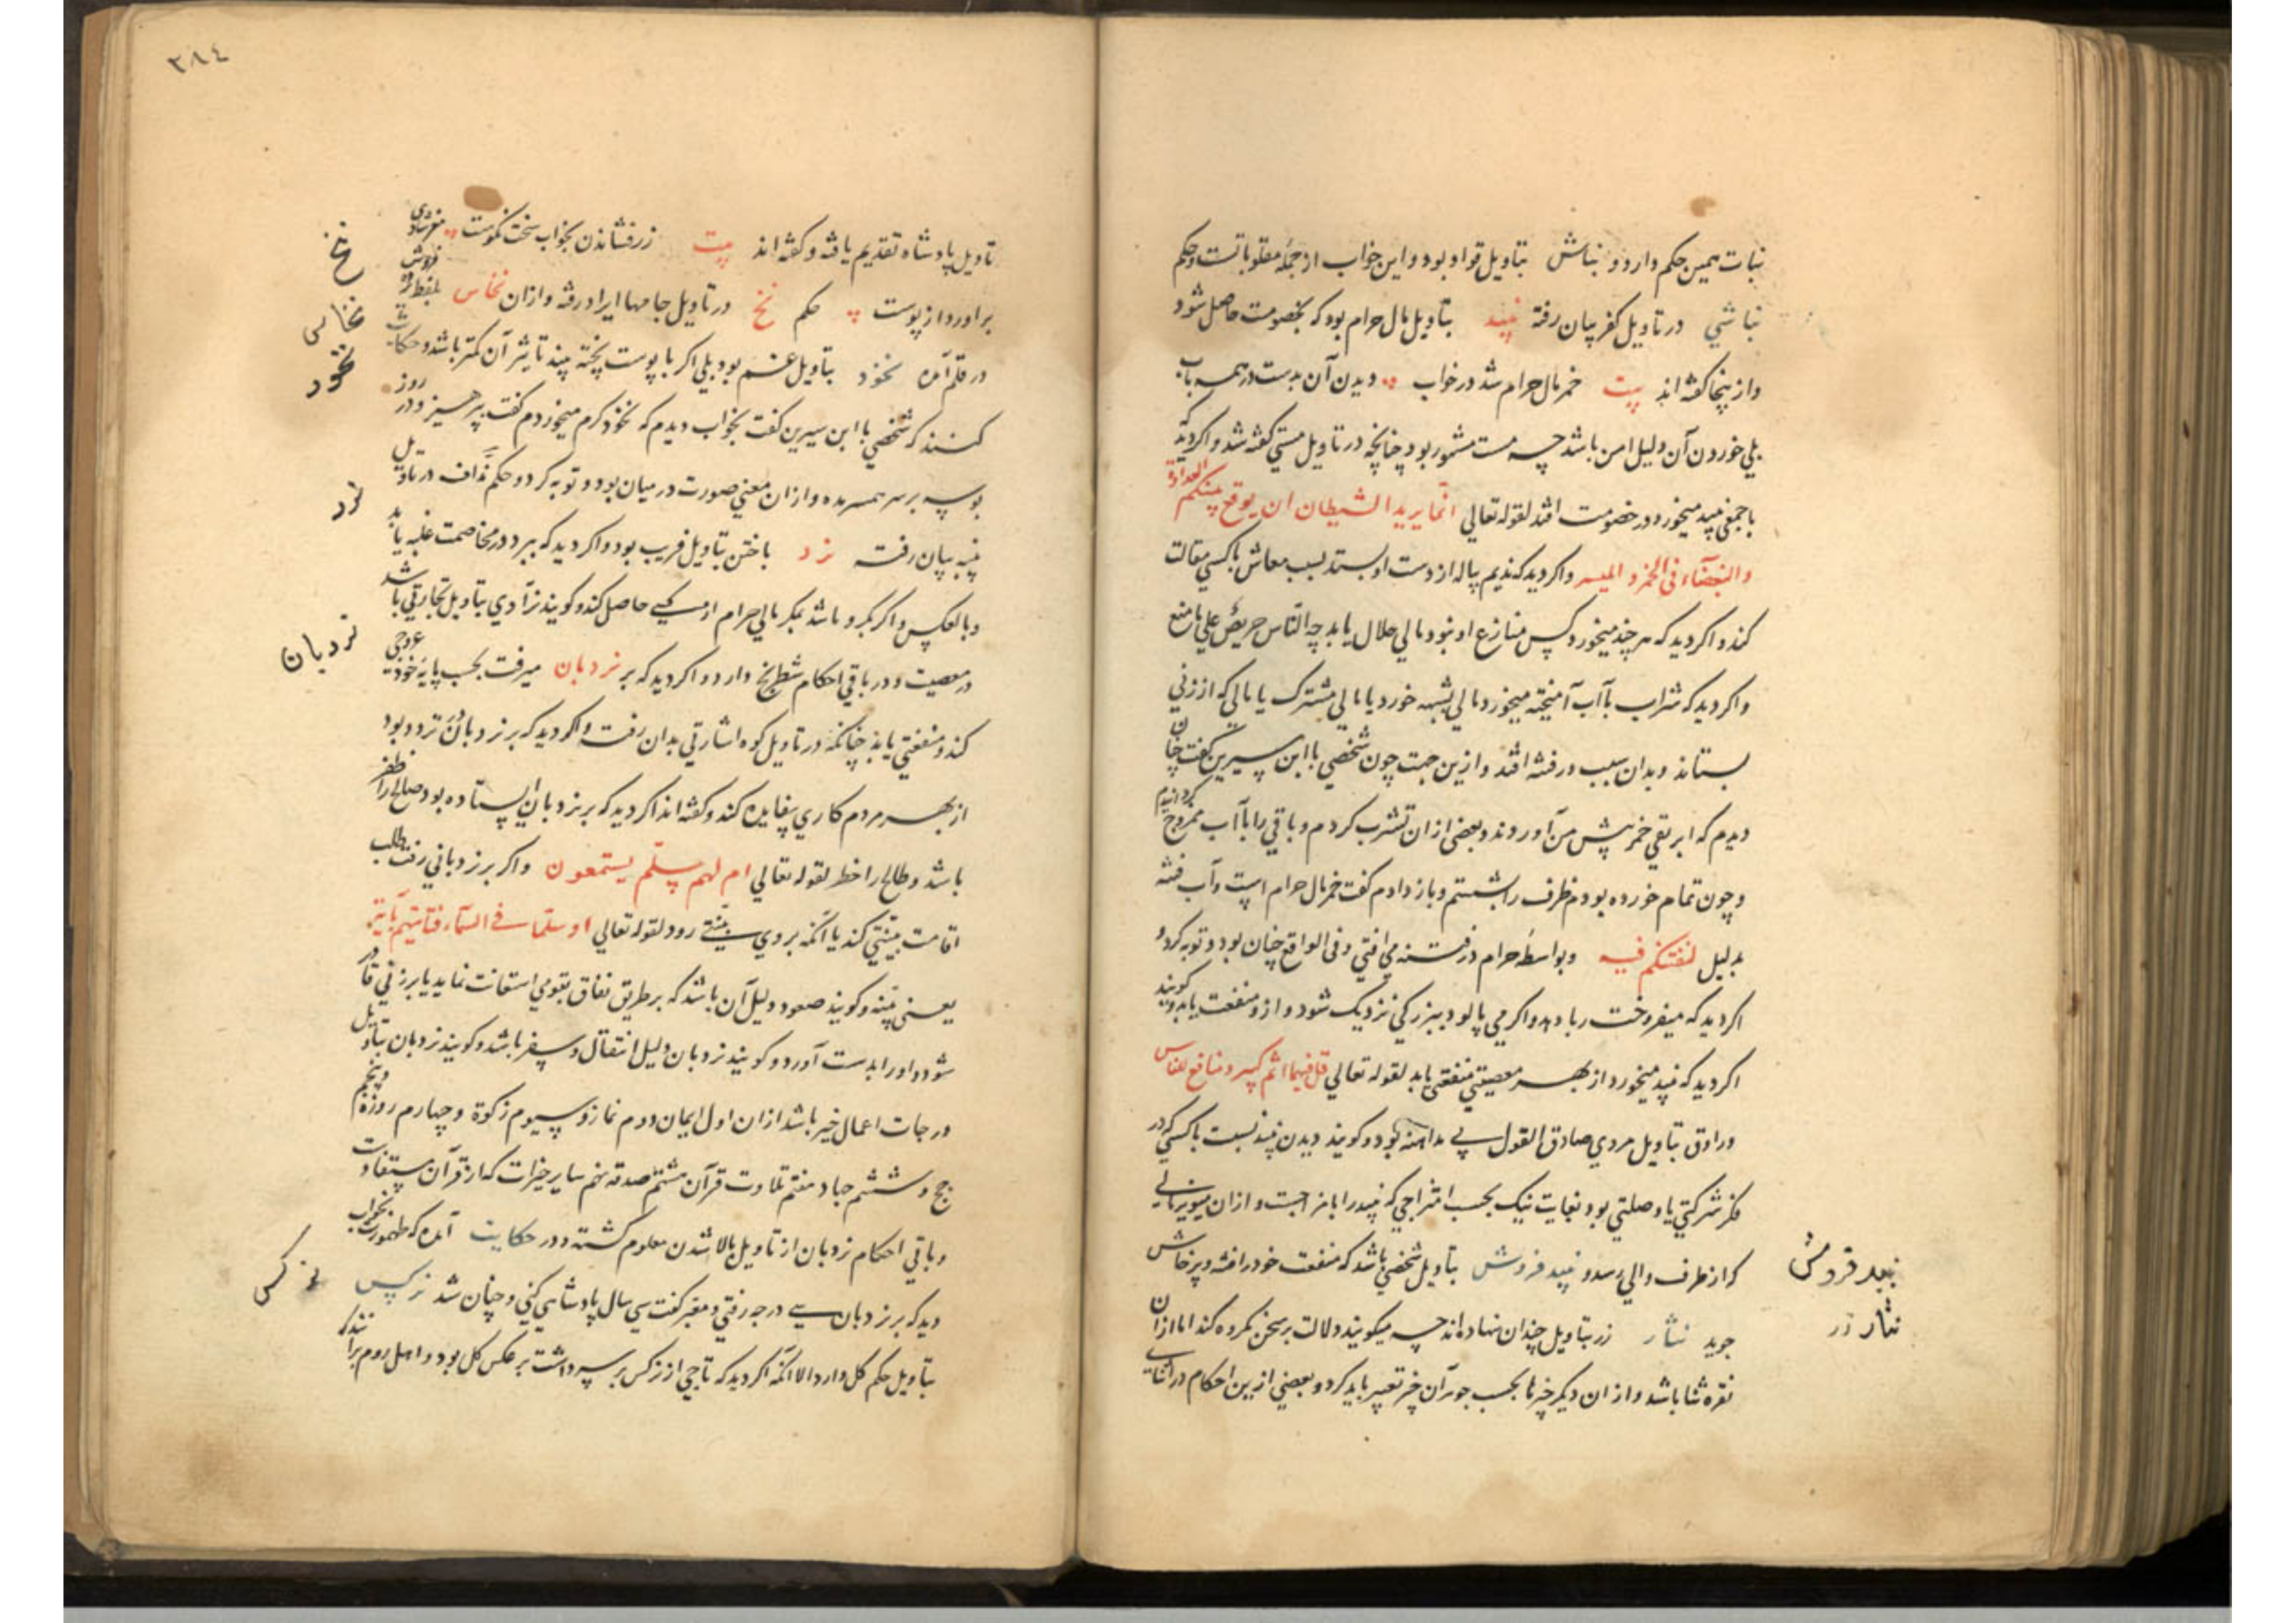 نبات همین حکم دارد و نباش بتاویل قواد بود و این خواب از جمله مقلوباتست و حکم
نباشی در تاویل کفر بیان رفته نبید بتاویل مال حرام بود که بخصومت حاصل شود
و از ینجا کفته اند بیت خمر مال حرام شد در خواب دیدن آن بدست در همه باب
بلی خوردن آن دلیل امن باشد چه مست مشهور بود چنانچه در تاویل مستی کفته شد و اکر دید که
با جمعی نبید میخورد در خصومت افتد لقوله تعالی انما یرید الشیطان ان یوقع بینکم العداوة
والبغضآء فی الخمر و المیسر و اکر دید که ندیم پیاله از دست او بستد بسبب معاش با کسی مقالت
کند و اکر دید که هر چند میخورد کس منازع او نبود مالی حلال یابد چه الناس حریص علی ما منع
و اکر دید که شراب با آب آمیخته میخورد مالی بشبهه خورد یا مالی مشترک یا مالی که از زنی
بستاند و بدان سبب در فتنه افتد و ازین جهت چون شخصی با ابن سیرین کفت چنان
دیدم که ابریقی خمر پیش من آوردند و بعضی از ان تشرب کردم و باقی را با آب ممزوج کردانیدم
و چون تمام خورده بودم ظرف را بشستم و باز دادم کفت خمر مال حرام است و آب فتنه
بدلیل لنفتنهم فیه و بواسطه حرام در فتنه می افتی و فی الواقع چنان بود و توبه کرد و
اکر دید که میفروخت ربا دهد و اکر می پالود ببزرکی نزدیک شود و از و منفعت یابد و کویند
اکر دید که نبید میخورد از بهر معصیتی منفعتی یابد لقوله تعالی قل فیهما اثم کبیر و منافع للناس
و راوق بتاویل مردی صادق القول بی مداهنه بود و کویند دیدن نبید نسبت با کسی که در
فکر شرکتی یا وصلتی بود بغایت نیک بحسب امتزاجی که نبید را با مزاجست و از ان
که از طرف والی رسد و نبید فروش بتاویل شخصی باشد که منفعت خود را فتنه و پرخاش
جوید نثار زر بتاویل چندان نهاده اند چه میکویند دلالت بر سخن مکروه کند اما از ان
نقره ثنا باشد و از ان دیکر چیزها بحسب جوهر آن چیز تعبیر باید کرد و بعضی ازین احکام در اثنای
نبید فروش
نثار زر
٣٨٤
تاویل پادشاه تقدیم یافته و کفته اند بیت زر فشاندن بخواب سخت نکوست
براورد از پوست حکم نخ در تاویل جامها ایراد رفته و ازان نخاس بلفظ فروش
در قلم آمده نخود بتاویل غم بود بلی اکر با پوست پخته بیند تاثیر آن کمتر باشد و حکایت
کنند که شخصی با ابن سیرین کفت بخواب دیدم که نخود کرم میخوردم کفت پرهیز و در روز
بوسه بر سر همسر مده و ازان معنی صورت در میان بود و توبه کرد و حکم نداف در تاویل
پنبه بیان رفته نرد باختن بتاویل فریب بود و اکر دید که ببرد در مخاصمت غلبه یابد
و بالعکس و اکر کرو باشد بمکر مالی حرام از کسی حاصل کند و کویند نرادی بتاویل تجارتی باشد
در معصیت و در باقی احکام شطرنج دارد و اکر دید که بر نردبان میرفت بحسب پایه خود عروجی
کند و منفعتی یابد چنانکه در تاویل کوه اشارتی بدان رفت و اکر دید که بر نردبان تردد بود
از بهر مردم کاری بیفایده کند و کفته اند اکر دید که بر نردبان ایستاده بود صالح را ظفر
باشد و طالح را خطر لقوله تعالی ام لهم سلم یستمعون و اکر بر نردبانی رفت طلب
اقامت بینتی کند یا آنکه بر وی بینتی رود لقوله تعالی او سلما فی السمآء فتاتیهم بآیة
یعنی بینه و کویند صعود دلیل آن باشد که بر طریق نفاق بقومی استعانت نماید یا بر زنی قادر
شود و او را بدست آورد و کویند نردبان دلیل انتقال و سفر باشد و کویند نردبان بتاویل
درجات اعمال خیر باشد از ان اول ایمان دوم نماز و سیوم زکوة و چهارم روزه و پنجم
حج و ششم جهاد هفتم تلاوت قرآن هشتم صدقه نهم سایر خیرات که از قرآن مستفادست
و باقی احکام نردبان از تاویل بالا شدن معلوم کشته و در حکایت آمده که طهمورث بخواب
دید که بر نردبان سی درجه رفتی و معبر کفت سی سال پادشاهی کنی و چنان شد نرکس
بتاویل حکم کل دارد الا انکه اکر دید که تاجی از نرکس بر سر داشت بر عکس کل بود و اهل روم برانند که
نخ
نخاس
نخود
نرد
نردبان
نرکس